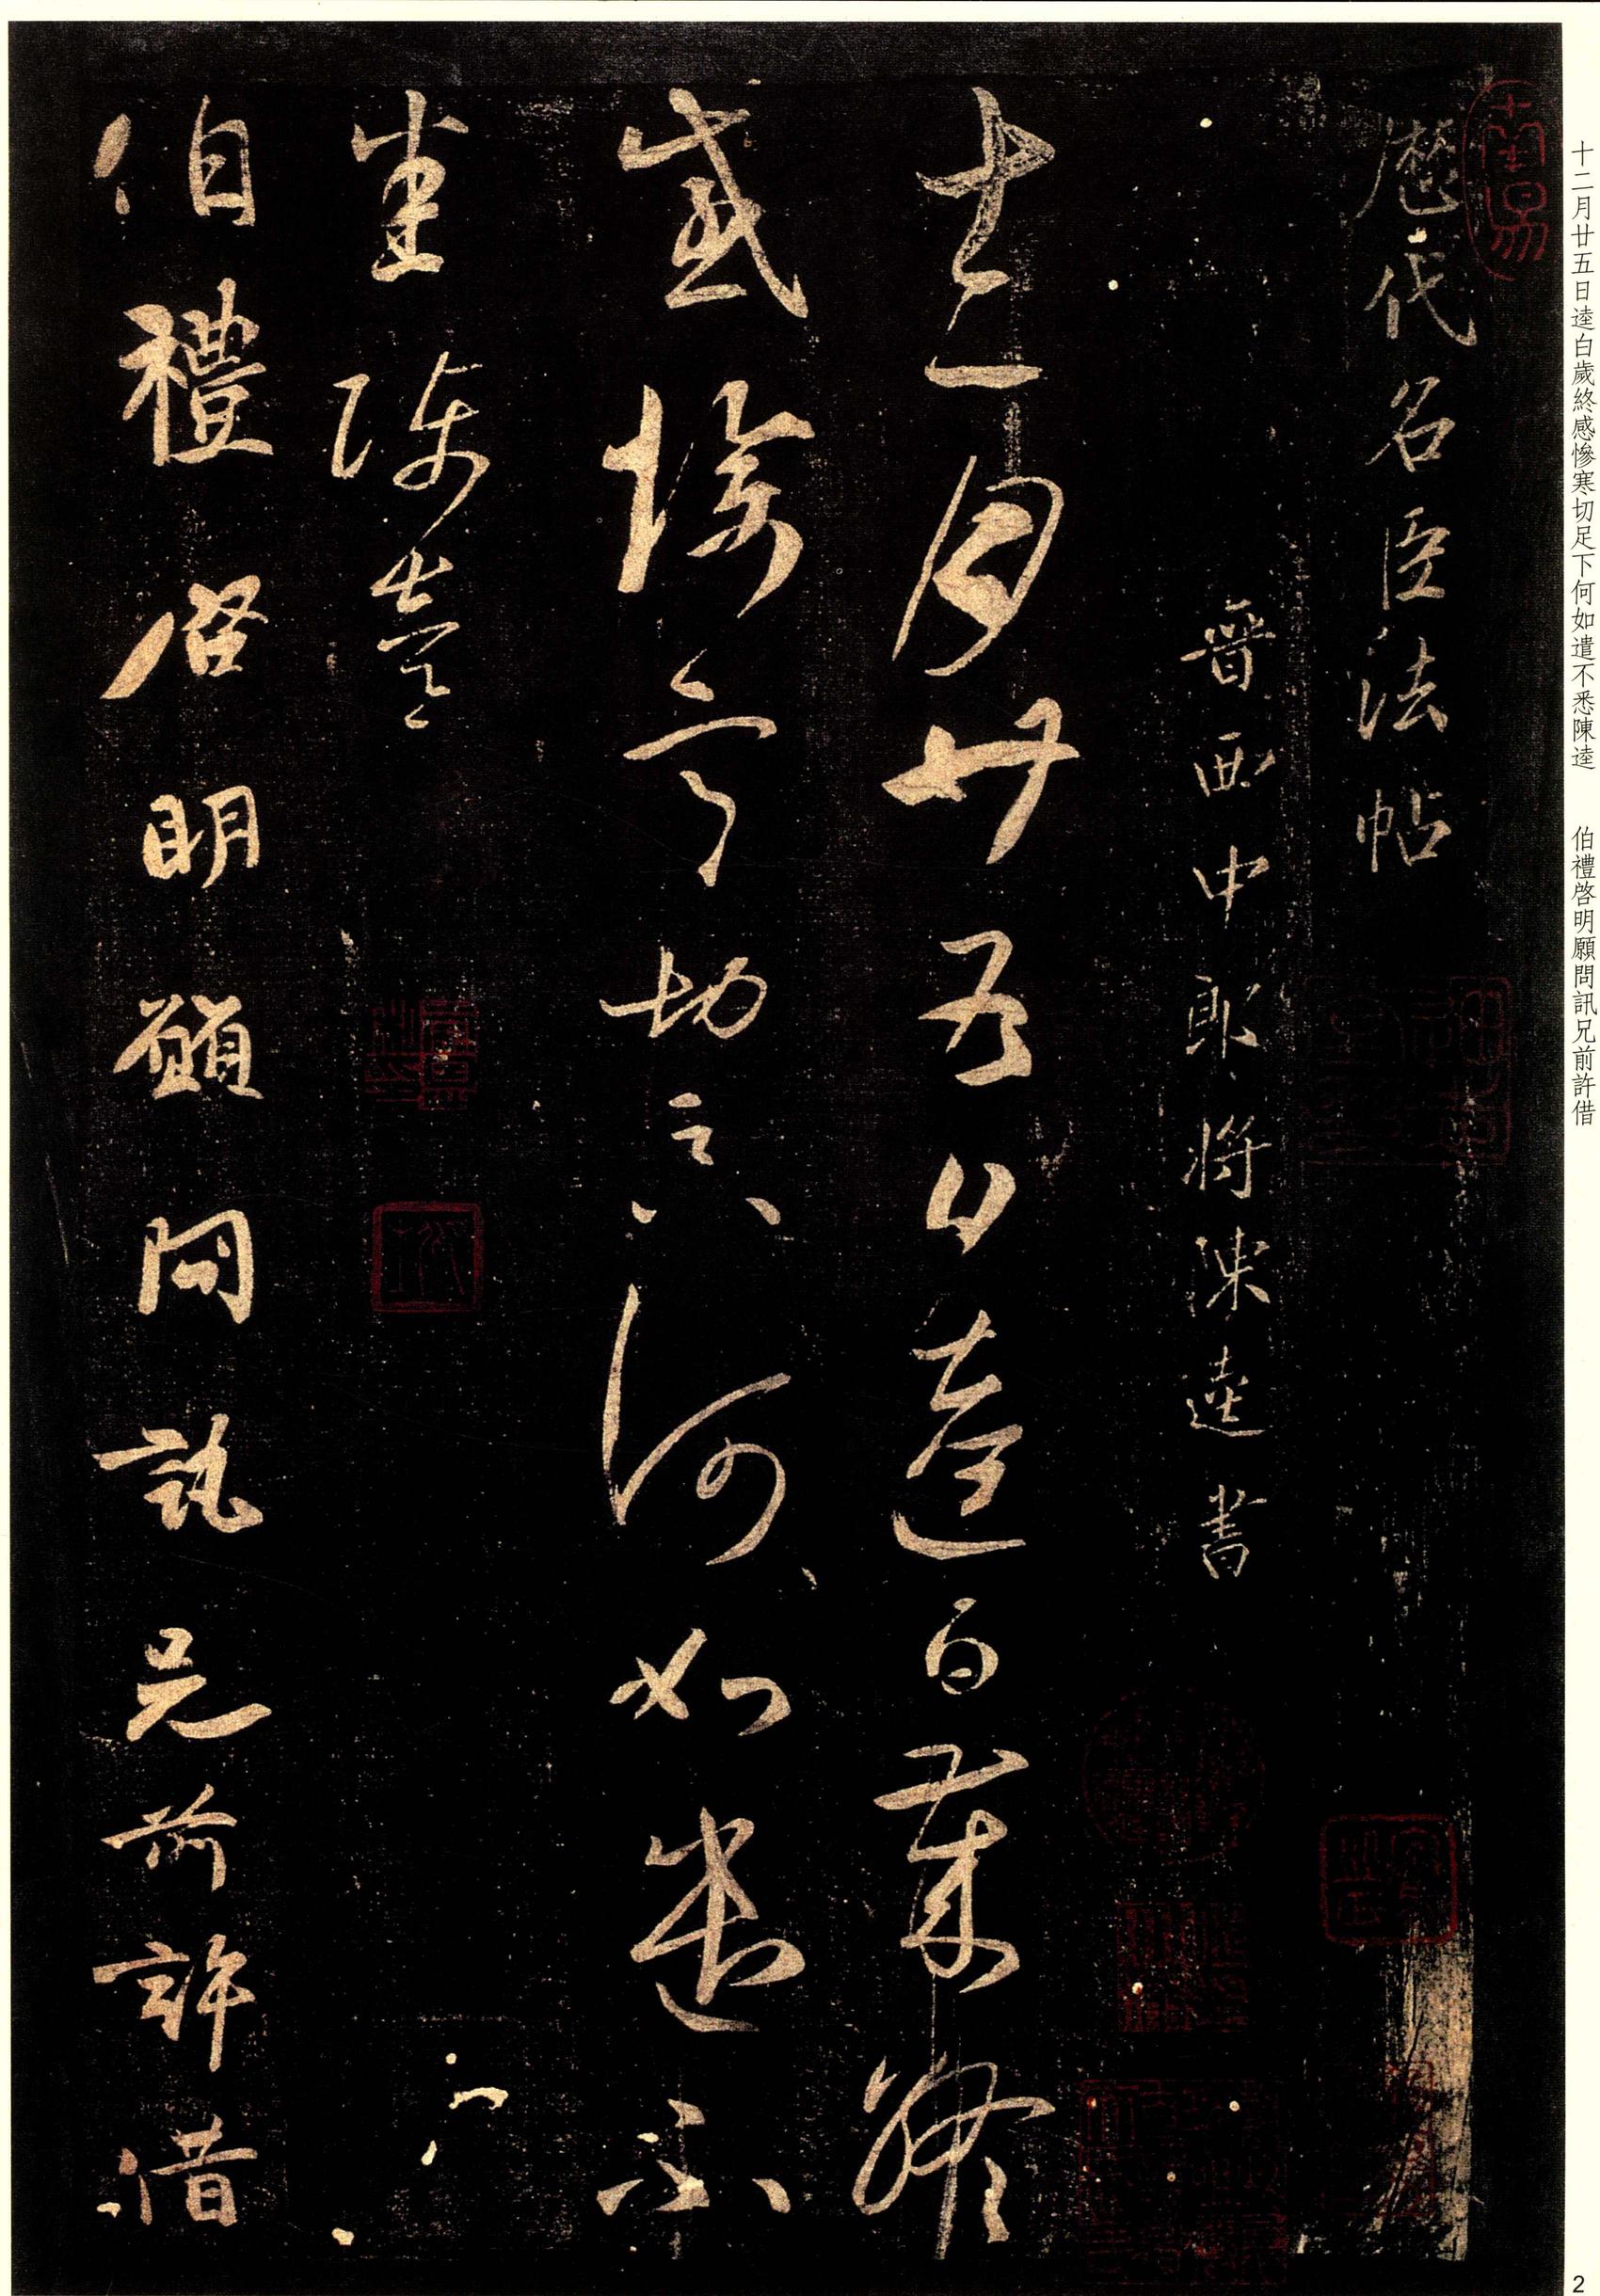 十二月廿五日逵白歲終感惨寒切足下何如遣不悉陳逵　伯禮啓明願問訊兄前許借
歷代名臣法帖
晉西中郎將陳逵書
十二月廿五日逵白歲終
感惨寒切足下何如遣不
悉陳逵
伯禮啓明願問訊兄前許借
2